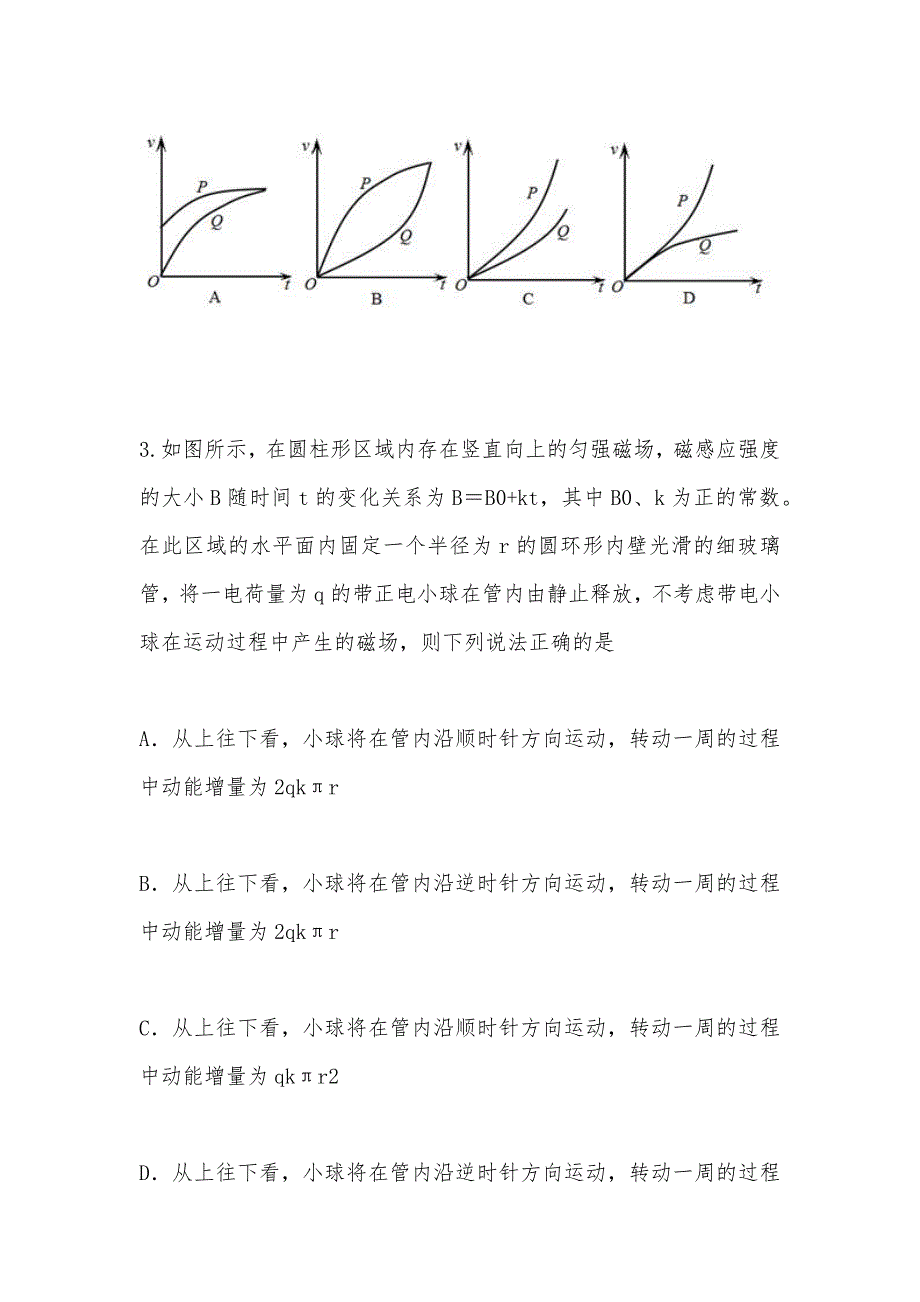 v P Q O t A
v P Q O t B
v P Q O t C
v P Q O t D
3.如图所示，在圆柱形区域内存在竖直向上的匀强磁场，磁感应强度
的大小 B 随时间 t 的变化关系为 B＝B0+kt，其中 B0、k 为正的常数。
在此区域的水平面内固定一个半径为 r 的圆环形内壁光滑的细玻璃
管，将一电荷量为 q 的带正电小球在管内由静止释放，不考虑带电小
球在运动过程中产生的磁场，则下列说法正确的是
A．从上往下看，小球将在管内沿顺时针方向运动，转动一周的过程
中动能增量为 2qkπr
B．从上往下看，小球将在管内沿逆时针方向运动，转动一周的过程
中动能增量为 2qkπr
C．从上往下看，小球将在管内沿顺时针方向运动，转动一周的过程
中动能增量为 qkπr2
D．从上往下看，小球将在管内沿逆时针方向运动，转动一周的过程